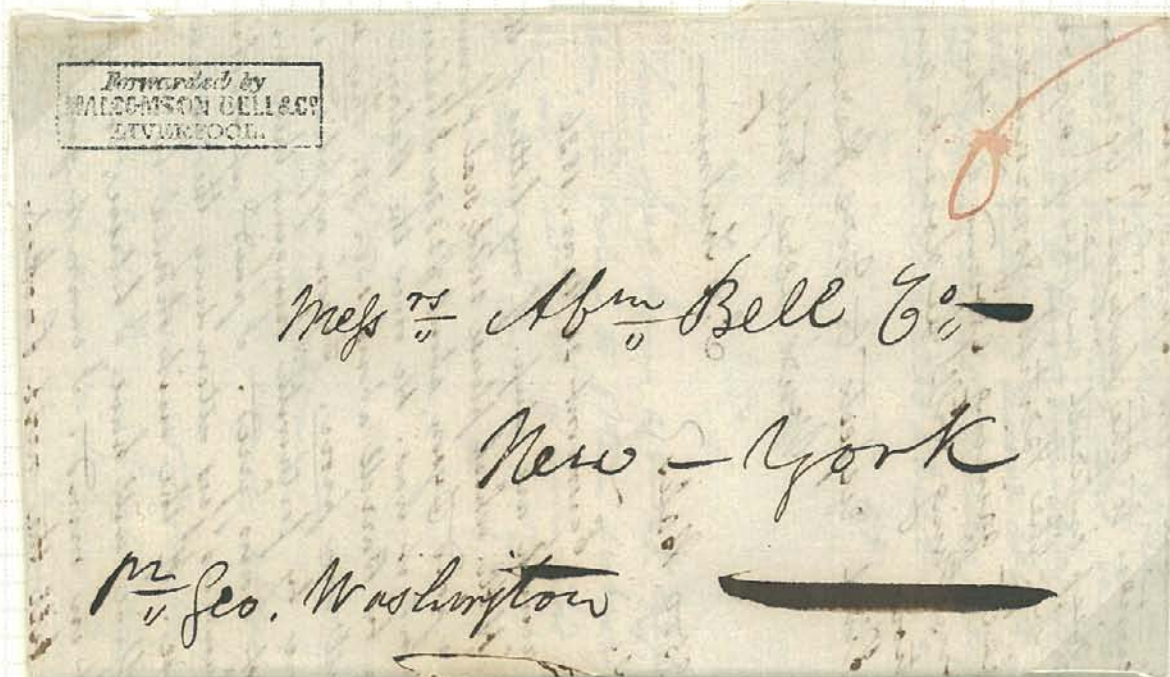 Forwarded by
MALCOMSON BELL & Co
LIVERPOOL.
6
Messrs Abm Bell Co
New - York
pr Geo. Washington